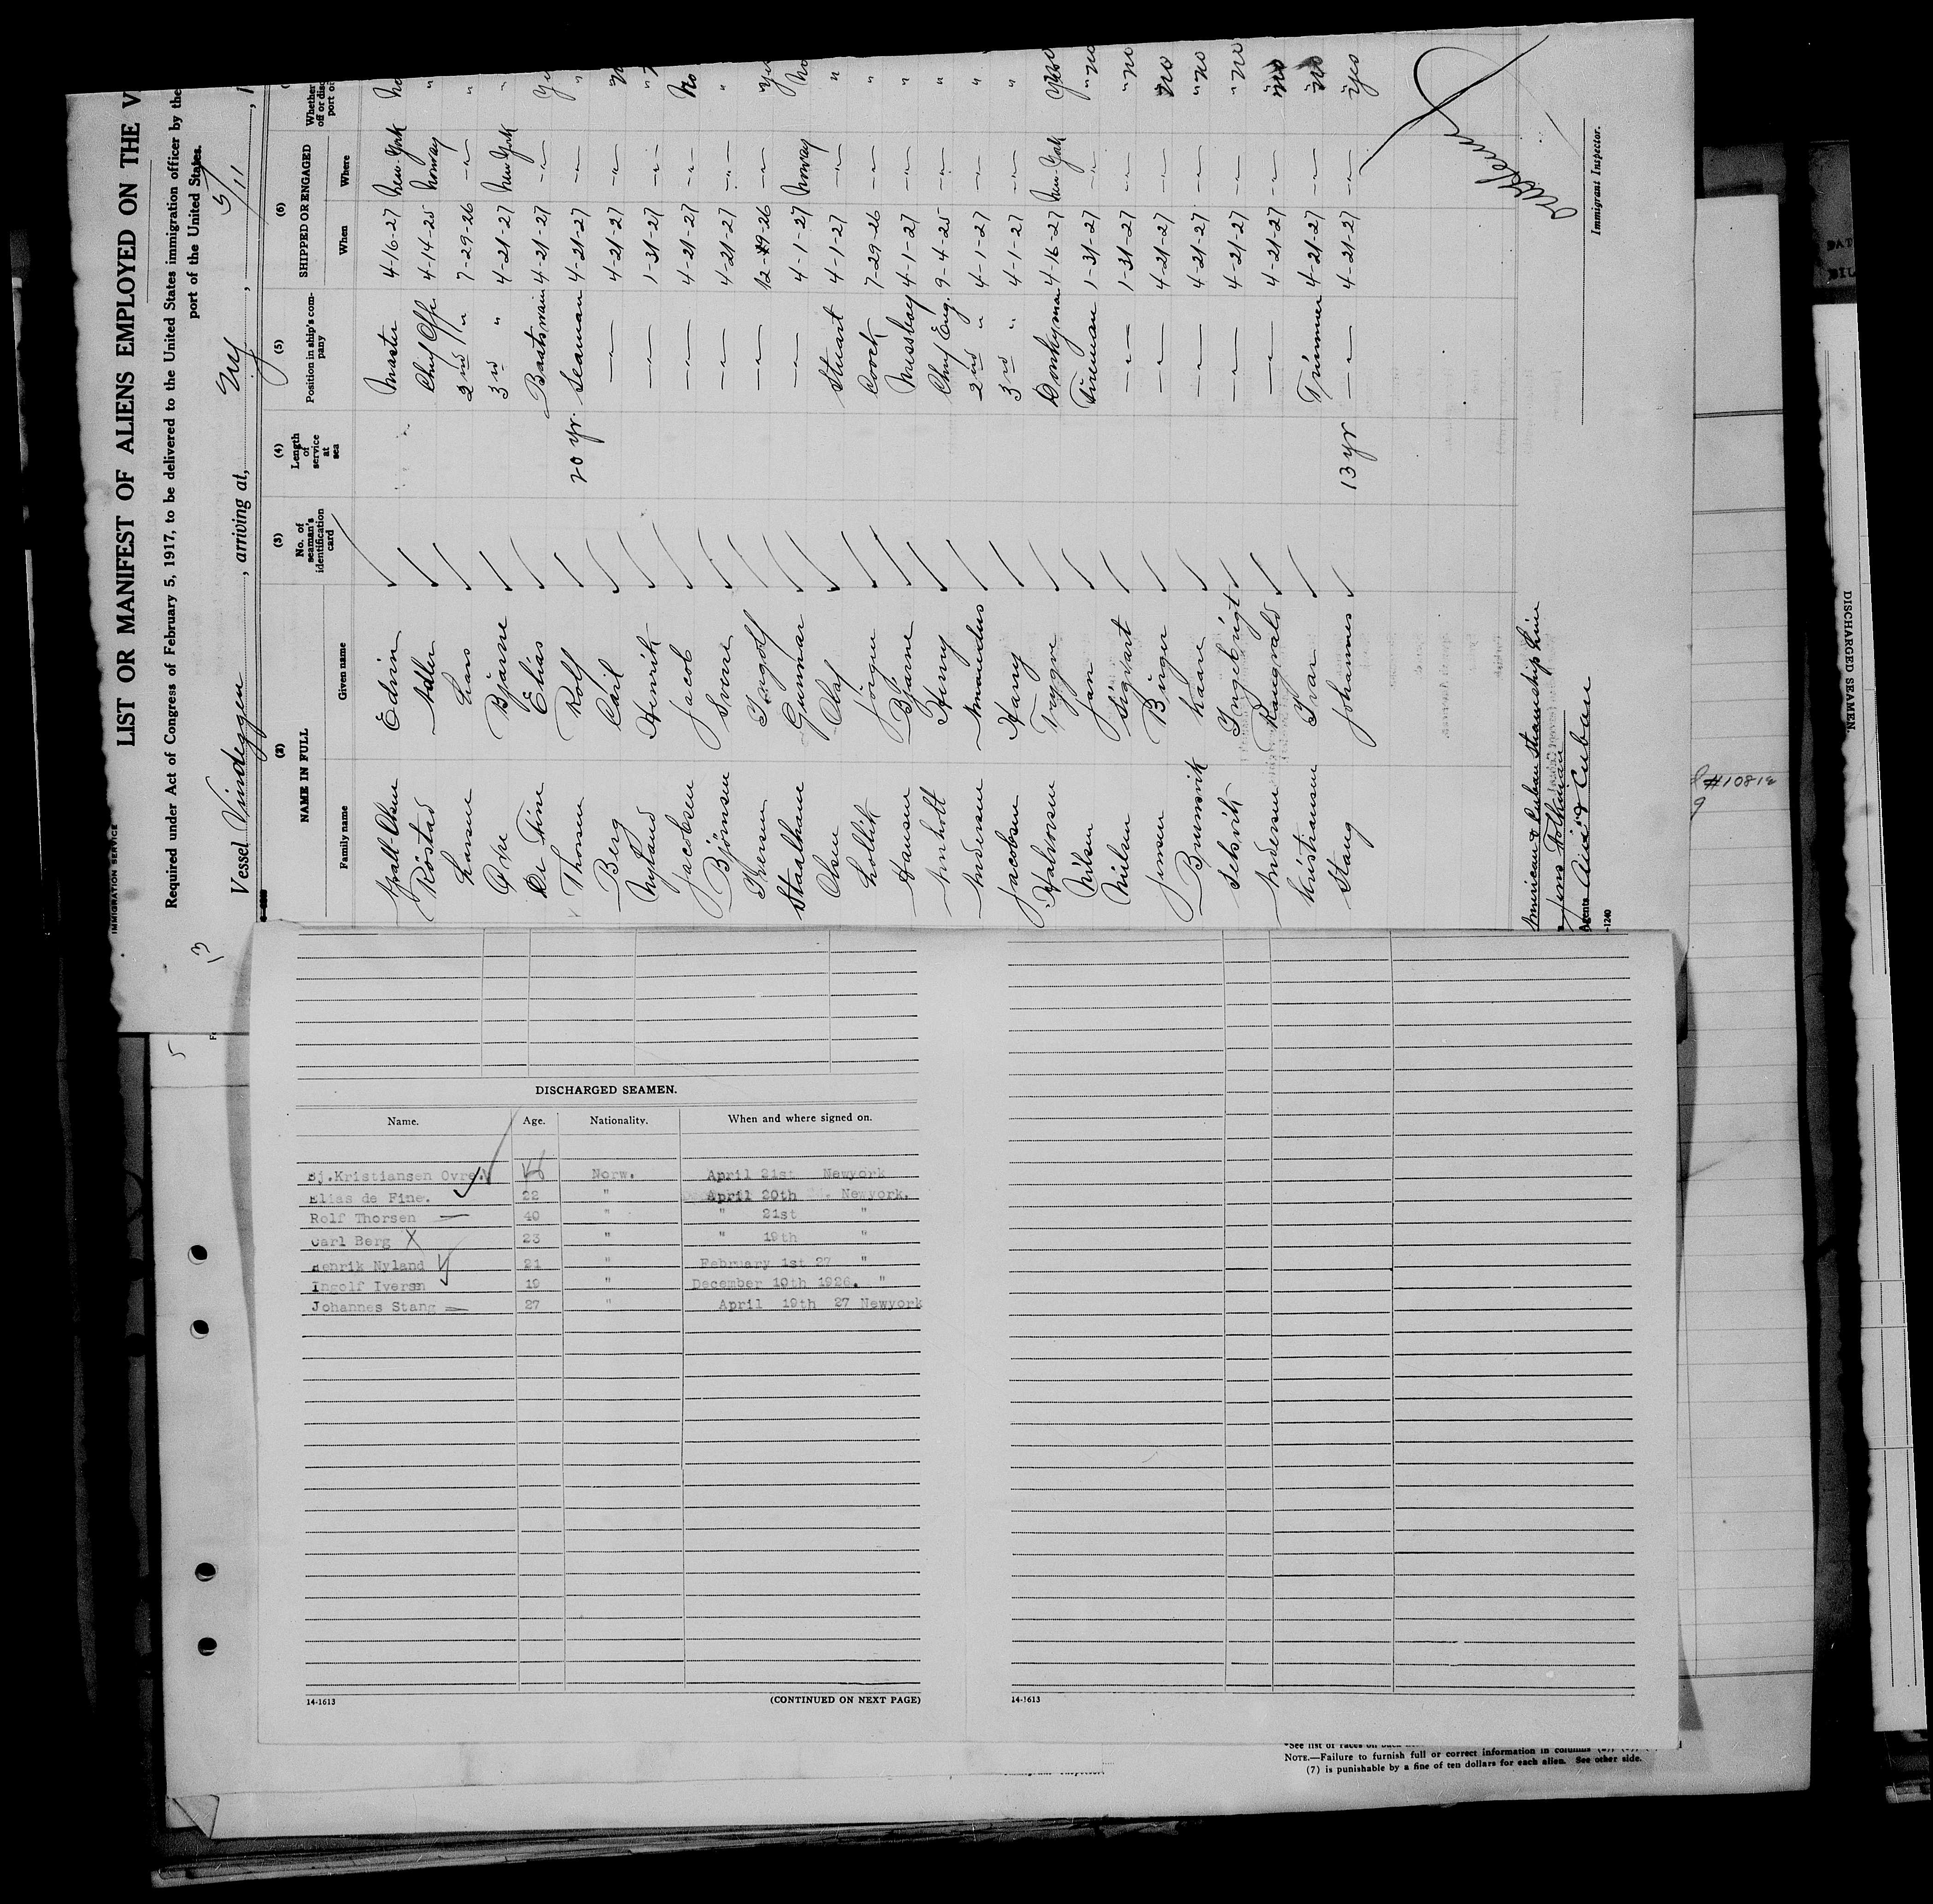 IMMIGRATION SERVICE
LIST OR MANIFEST OF ALIENS EMPLOYED ON THE V
Required under Act of Congress of February 5, 1917, to be delivered to the United States immigration officer by the
port of the United States.
Vessel Vindeggen, arriving at, NY, 5/11, 1
(2) (3) (4) (5) (6)
NAME IN FULL No. of seaman's identification card Length of service at sea Position in ship's company SHIPPED OR ENGAGED Whether
Family name Given name When Where
Edvin ✓ Master 4-16-27 New-York No
Röstad Adler ✓ Chief Offr 4-14-25 Norway "
Larsen Lars ✓ 2nd " 7-29-26 -"- "
Övre Bjarne ✓ 3rd " 4-21-27 New York "
De Fine Elias ✓ Boatswain 4-21-27 -"- Yes
Thorsen Rolf ✓ 20 yr. Seaman 4-21-27 -"- "
Berg Carl ✓ -"- 4-21-27 -"- no
Nyland Henrik ✓ -"- 1-31-27 -"-
Jacobsen Jacob ✓ -"- 4-21-27 -"- No
Björnsen Sverre ✓ -"- 4-21-27 -"- "
Iversen Ingolf ✓ -"- 12-19-26 -"- Yes
Staalhane Gunnar ✓ -"- 4-1-27 Norway No
Olsen Olaf ✓ Stuart 4-1-27 -"- "
Lollik Jörgen ✓ Coock 7-29-26 -"- "
Hansen Bjarne ✓ Messboy 4-1-27 -"- "
Anholt Henry ✓ Chief Eng. 9-4-25 -"- "
Andersen Amandus ✓ 2nd " 4-1-27 -"- "
Jacobsen Harry ✓ 3rd " 4-1-27 -"- "
Halvorsen Trygve ✓ Donkyman 4-16-27 New-York
Nilsen Jan ✓ Fireman 1-31-27 -"- "no
Nilsen Sigvart ✓ -"- 1-31-27 -"- "no
Jensen Birger ✓ -"- 4-21-27 -"- "no
Brunvik Kaare ✓ -"- 4-21-27 -"- "no
Selsvik Ingebrigt ✓ -"- 4-21-27 -"- "no
Andersen Rangvald ✓ -"- 4-21-27 -"- "no
Kristiansen Ivar ✓ Trimmer 4-21-27 -"- "no
Stang Johannes ✓ 13 yr -"- 4-21-27 -"- yes
American & Cuban Steamship Line
Agents
Immigrant Inspector.
-1240
DISCHARGED SEAMEN.
Name. Age. Nationality. When and where signed on.
Bj.Kristiansen Ovre. Norw. April 21st Newyork
Elias de Fine. 22 " April 20th Newyork.
Rolf Thorsen 40 " " 21st "
Carl Berg X 23 " " 19th "
Henrik Nyland 21 " February 1st 27 "
Ingolf Iversn 19 " December 19th 1926. "
Johannes Stang 27 " April 19th 27 Newyork
14-1613 (CONTINUED ON NEXT PAGE)
14-1613
NOTE.—Failure to furnish full or correct information in columns
(7) is punishable by a fine of ten dollars for each alien. See other side.
#10812
DISCHARGED SEAMEN.